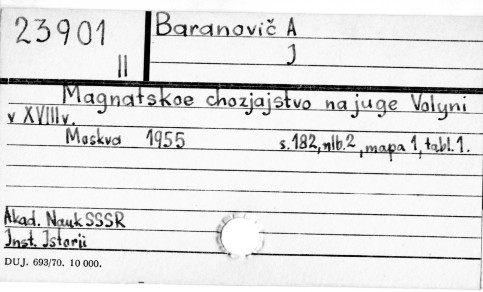 23901
II
Baranovič A
J
Magnatskoe chozjajstvo na juge Volyni
v XVIII v.
Moskva 1955 s.182, nlb.2, mapa 1, tabl.1.
Akad. Nauk SSSR
Inst. Istorii
DUJ. 693/70. 10 000.